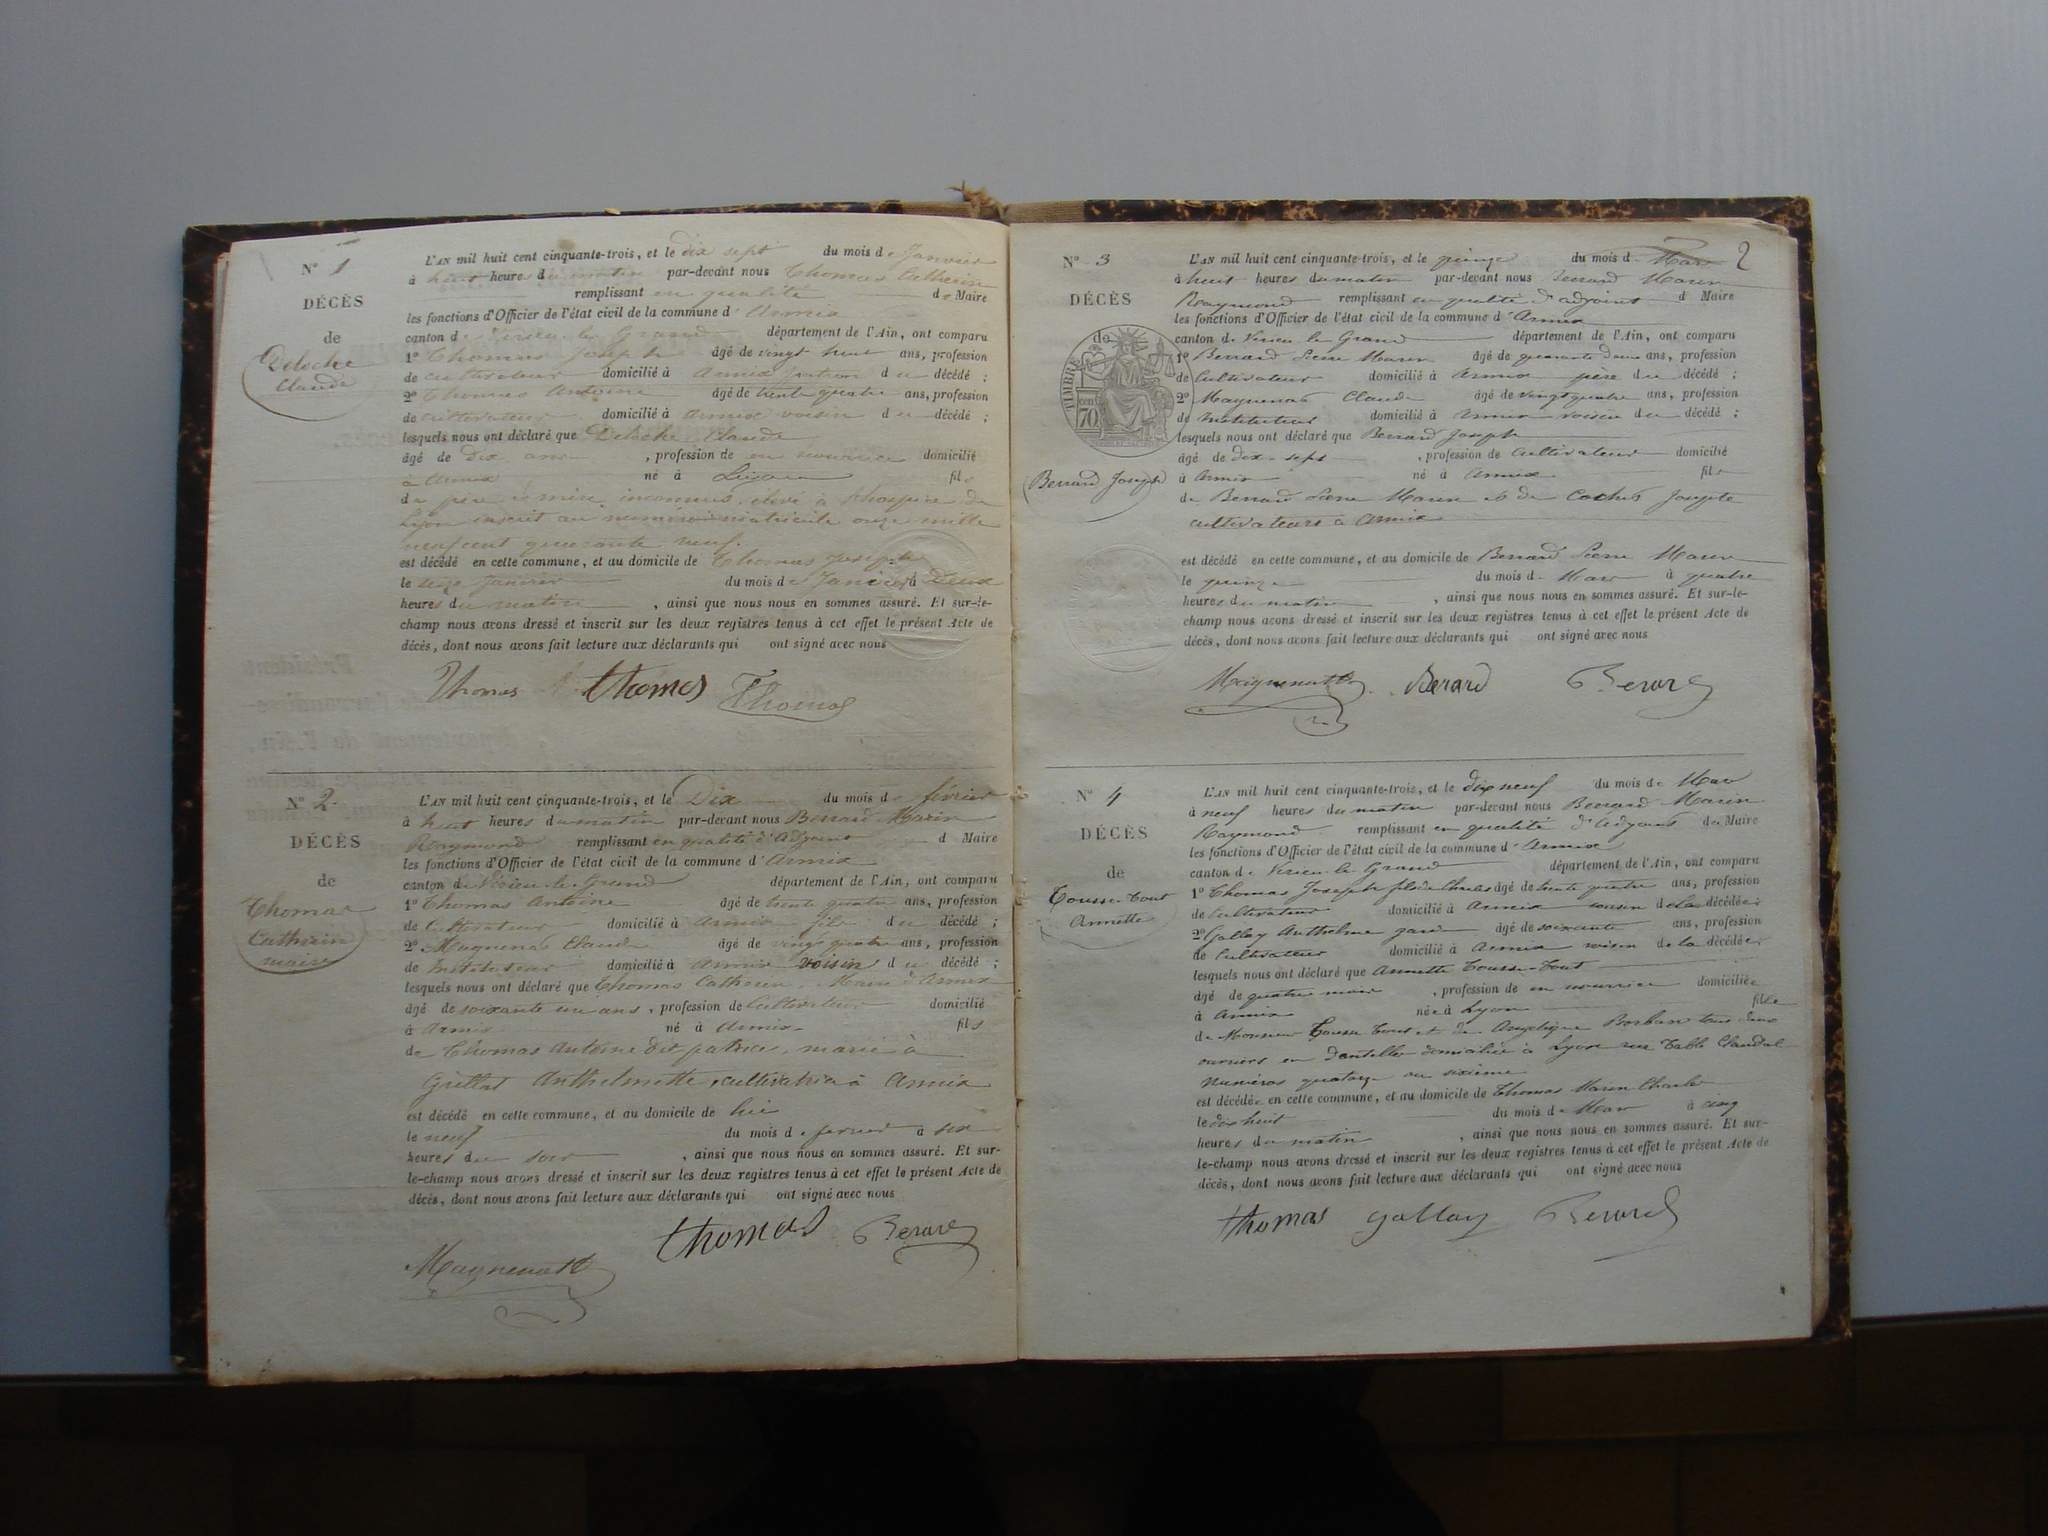 N° 1
DÉCÈS
de
Deloche
Claude
L'AN mil huit cent cinquante-trois, et le dix sept du mois de Janvier
à huit heures du matin par-devant nous Thomas Catherin
remplissant en qualité de Maire
les fonctions d'Officier de l'état civil de la commune d'Armix
canton de Virieu le Grand département de l'Ain, ont comparu
1° Thomas Joseph âgé de vingt huit ans, profession
de cultivateur domicilié à Armix du décédé ;
2° Thomas Antoine âgé de trente quatre ans, profession
de cultivateur domicilié à Armix voisin du décédé ;
lesquels nous ont déclaré que Deloche Claude
âgé de Dix ans, profession de en nourrice domicilié
à Armix né à Lyon fils
de père et mère inconnus élevé à l'hospice de
Lyon inscrit au numéro matricule onze mille
neuf cent quarante neuf.
est décédé en cette commune, et au domicile de Thomas Joseph
le seize Janvier du mois de Janvier à Deux
heures du matin, ainsi que nous nous en sommes assuré. Et sur-le-
champ nous avons dressé et inscrit sur les deux registres tenus à cet effet le présent Acte de
décès, dont nous avons fait lecture aux déclarants qui ont signé avec nous
Thomas thomas Thomas
N° 2
DÉCÈS
de
Thomas
Catherin
maire
L'AN mil huit cent cinquante-trois, et le Dix du mois de février
à huit heures du matin par-devant nous Berrard Marin
Raymond remplissant en qualité d'Adjoint d Maire
les fonctions d'Officier de l'état civil de la commune d'Armix
canton de Virieu le Grand département de l'Ain, ont comparu
1° Thomas Antoine âgé de trente quatre ans, profession
de Cultivateur domicilié à Armix fils du décédé ;
2° Magnenat Claude âgé de vingt quatre ans, profession
de Instituteur domicilié à Armix voisin du décédé ;
lesquels nous ont déclaré que Thomas Catherin, Maire d'Armix
âgé de soixante un ans, profession de Cultivateur domicilié
à Armix né à Armix fils
de Thomas Antoine dit patrice, marié à
Grillat Anthelmette, cultivatrice à Armix
est décédé en cette commune, et au domicile de lui
le neuf du mois de fevrier à six
heures du soir, ainsi que nous nous en sommes assuré. Et sur-
le-champ nous avons dressé et inscrit sur les deux registres tenus à cet effet le présent Acte de
décès, dont nous avons fait lecture aux déclarants qui ont signé avec nous
thomas Berard
Magnenat
2
N° 3
DÉCÈS
de
TIMBRE
70
Berrard Joseph
L'AN mil huit cent cinquante-trois, et le quinze du mois de Mars
à huit heures du matin par-devant nous Berrard Marin
Raymond remplissant en qualité d'adjoint d Maire
les fonctions d'Officier de l'état civil de la commune d'Armix
canton de Virieu le Grand département de l'Ain, ont comparu
1° Berrard Pierre Marin âgé de quarante deux ans, profession
de Cultivateur domicilié à Armix père du décédé ;
2° Magnenat Claude âgé de vingt quatre ans, profession
de Instituteur domicilié à Armix voisin du décédé ;
lesquels nous ont déclaré que Berrard Joseph
âgé de dix-sept, profession de Cultivateur domicilié
à Armix né à Armix fils
de Berrard Pierre Marin et de Cochet Josepte
cultivateurs à Armix
est décédé en cette commune, et au domicile de Berrard Pierre Marin
le quinze du mois de Mars à quatre
heures du matin, ainsi que nous nous en sommes assuré. Et sur-le-
champ nous avons dressé et inscrit sur les deux registres tenus à cet effet le présent Acte de
décès, dont nous avons fait lecture aux déclarants qui ont signé avec nous
Magnenat Berard Berard
N° 4
DÉCÈS
de
Tousse-Tout
Annette
L'AN mil huit cent cinquante-trois, et le dix neuf du mois de Mars
à neuf heures du matin par-devant nous Berrard Marin
Raymond remplissant en qualité d'Adjoint du Maire
les fonctions d'Officier de l'état civil de la commune d'Armix
canton de Virieu le Grand département de l'Ain, ont comparu
1° Thomas Joseph fils de Charles âgé de trente quatre ans, profession
de Cultivateur domicilié à Armix voisin de la décédée ;
2° Gallay Anthelme garde âgé de soixante ans, profession
de Cultivateur domicilié à Armix voisin de la décédée ;
lesquels nous ont déclaré que Annette Tousse-Tout
âgé de quatre mois, profession de en nourrice domiciliée
à Armix née à Lyon fille
de Monsieur Tousse Tout et de Angélique Borban tous deux
ouvriers en domiciliés à Lyon rue
Numéros quatorze au sixième
est décédée en cette commune, et au domicile de Thomas Marin Charles
le dix huit du mois de Mars à cinq
heures du matin, ainsi que nous nous en sommes assuré. Et sur-
le-champ nous avons dressé et inscrit sur les deux registres tenus à cet effet le présent Acte de
décès, dont nous avons fait lecture aux déclarants qui ont signé avec nous
thomas Gallay Berard